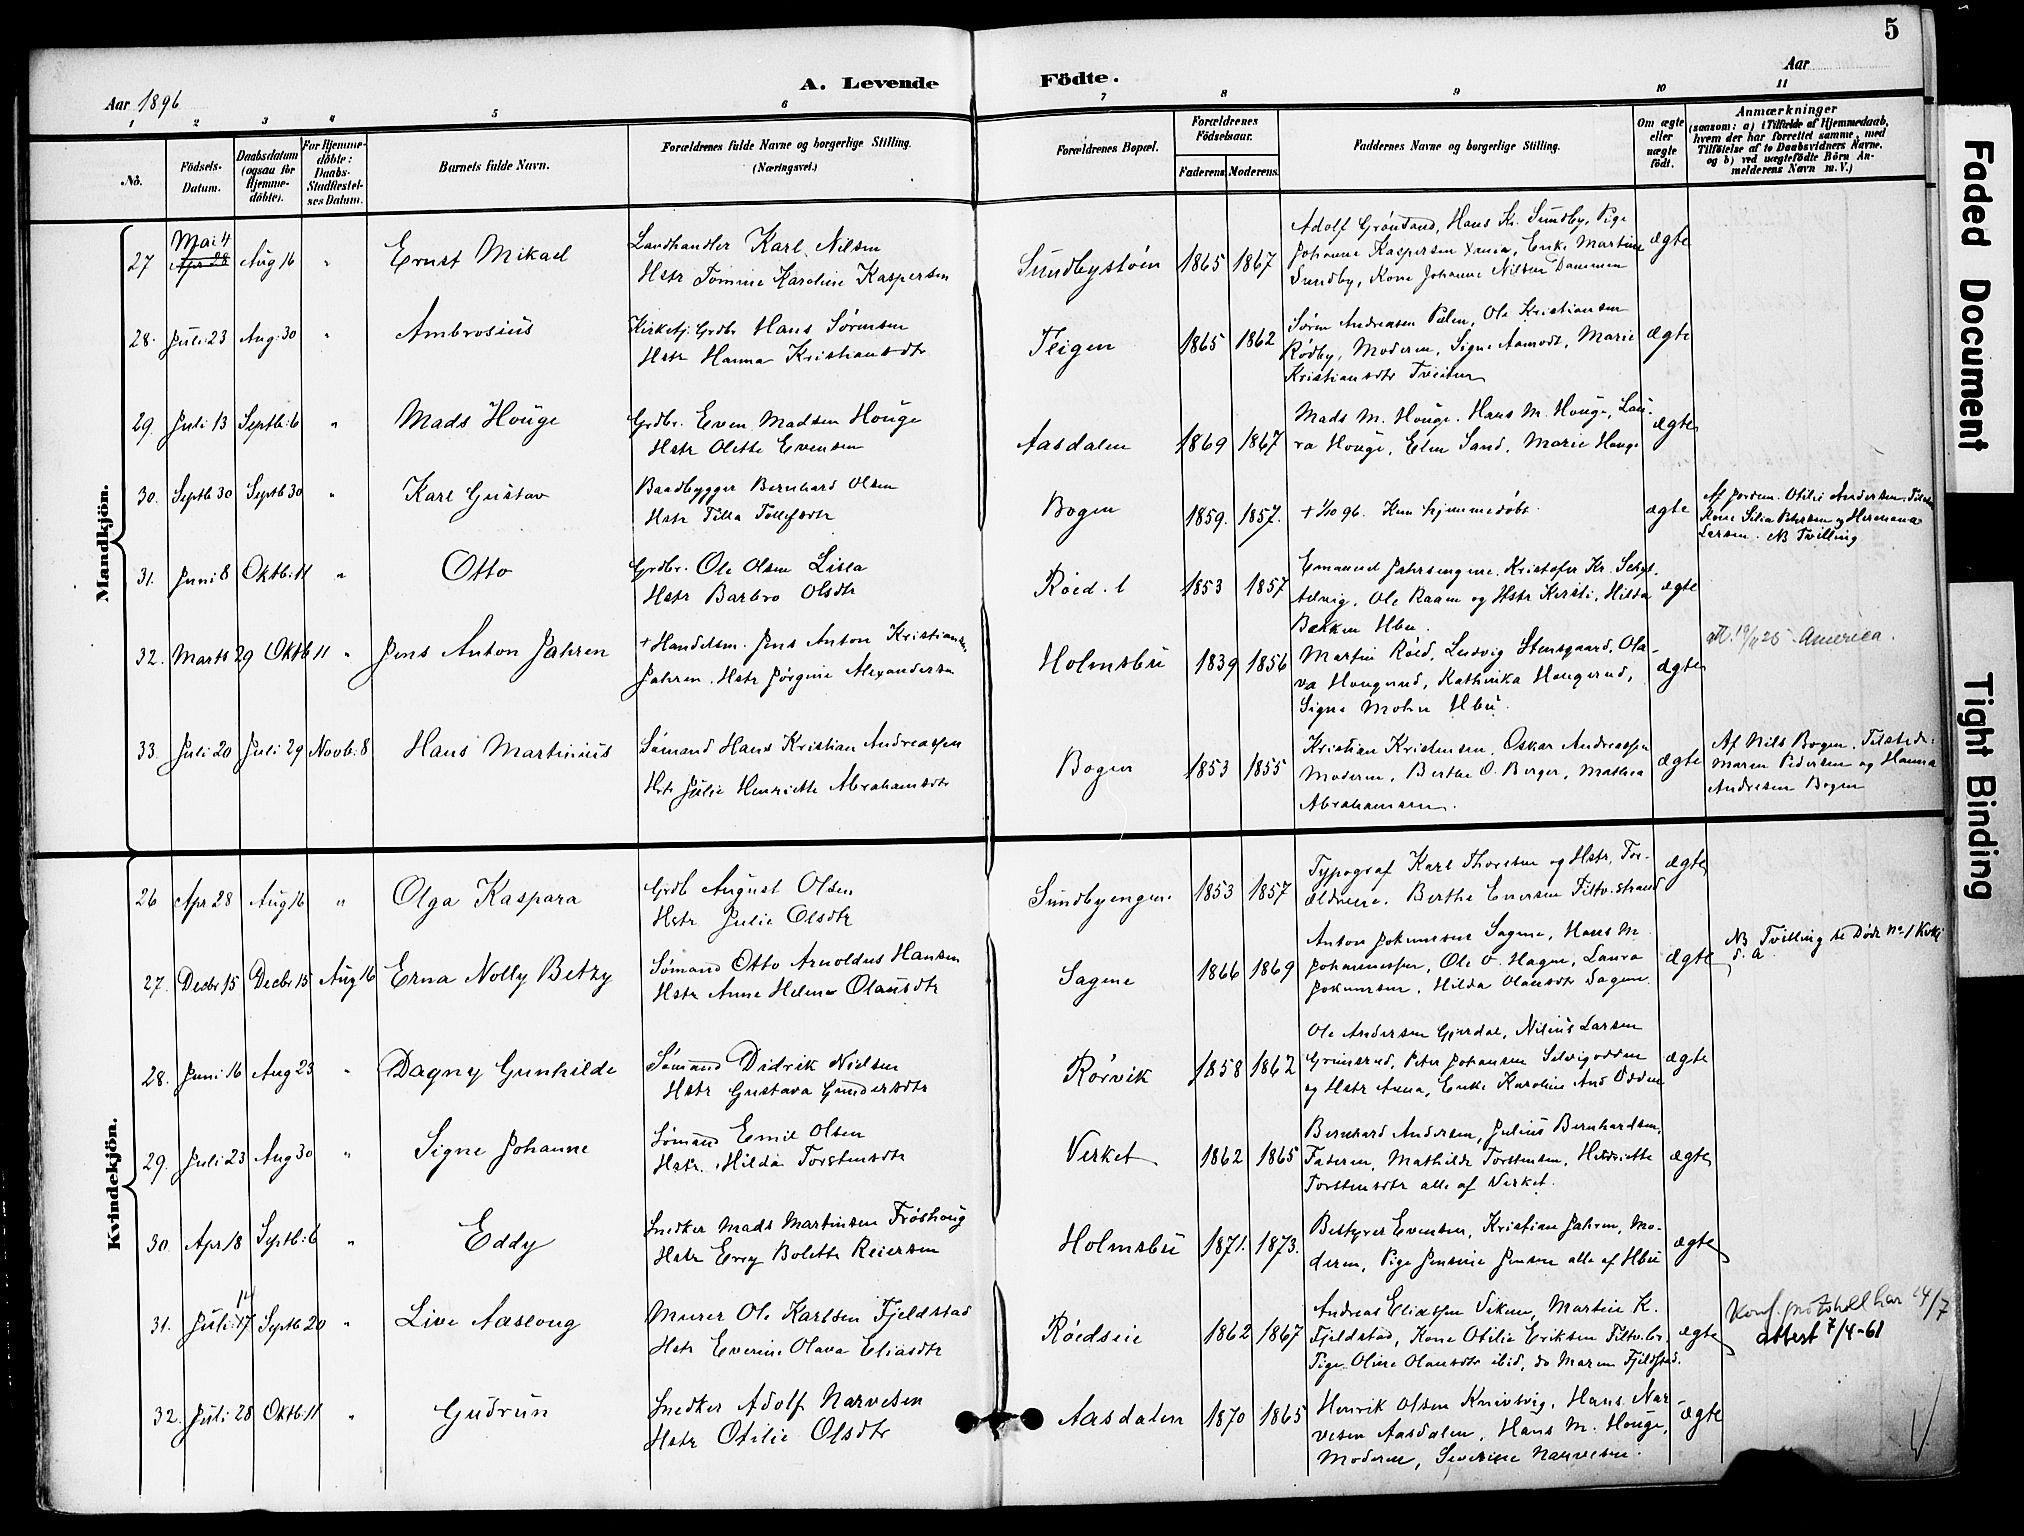 5
A. Levende Födte.
Aar 1896
Aar
1 2 3 4 5 6 7 8 9 10 11
No.
Födsels-Datum.
Daabsdatum (ogsau för Hjemmedöbte).
For Hjemmedöbte: Daabs-Stadfæstelses Datum.
Barnets fulde Navn.
Forældrenes fulde Navne og borgerlige Stilling.
(Næringsvei.)
Forældrenes Bopæl.
Forældrenes Födselsaar.
Faderens Moderens.
Faddernes Navne og borgerlige Stilling.
Om ægte eller uægte födt.
Anmærkninger
(saasom: a) i Tilfælde af Hjemmedaab,
hvem der har forrettet samme, med
Tilföielse af to Daabsvidners Navne,
og b) ved uægtefödte Börn Anmelderens Navn m. V.)
Mandkjön.
27 Mai 4 Apr 28 Aug 16 " Ernst Mikael
Landhandler Karl Nilsen
Hstr Tomine Karoline Kaspersen
Sundbystøen 1865 1867
Adolf Grønsand, Hans Kr. Sundby, Pige
Johanne Kaspersen, Enke Martine
Sundby, Kone Johanne Nilsen Dammen
ægte
28. Juli 23 Aug: 30 " Ambrosius
Kirketj. Grdbr Hans Sørensen
Hstr Hanna Kristiansdtr
Teigen 1865 1862
Søren Andreasen, Ole Kristiansen
Rødby, Moderen, Signe Aamodt, Marie
Kristiansdtr Tveiten
ægte
29. Juli 13 Septb: 6 " Mads Houge
Grdbr. Even Madsen Houge
Hstr Olette Evensen
Aasdalen 1869 1867
Mads M. Houge. Hans M. Houge, Lau-
ra Houge, Elen Sand, Marie Houge
ægte
30. Septb 30 Septb 30 " Karl Gustav
Baadbygger Bernhard Olsen
Hstr Tilla Tollefsdtr
Bogen 1859. 1857.
+ 1/10 96. Kun hjemmedøbt.
ægte
Af Jordem. Otilie Andersen. Tilst.
Kone Silia Petersen og Hermana
Larsen. NB Tvilling
31. Juni 8 Oktb: 11 " Otto
Grdbr. Ole Olsen Lilla
Hstr Barbro Olsdtr
Røed. l 1853 1857
Emanuel Jahrsengene. Kristofer Kr.
Ole Raaen og Hstr Kirsti, Hilda
Bakken Hbu.
ægte
32. Marts 29 Oktb 11 " Jens Anton Jahren
+ Handelsm. Jens Anton Kristiansen
Jahren. Hstr Jørgine Alexandersen
Holmsbu 1839 1856
Martin Røed, Ludvig Stensgaard, Ola-
va Hougerud, Kathinka Hougerud,
Signe Mohn Hbu.
ægte
America.
33. Juli 20 Juli 29 Novb: 8 Hans Martinius
Sømand Hans Kristian Andreassen
Hstr Julie Henriette Abrahamsdtr
Bogen 1853 1855
Kristian Kristensen, Oskar Andreassen
Moderen, Berthe O. Berger, Mathea
Abrahamsen.
ægte
Af Nils Bogen. Tilstede:
Maren Pedersen og Hanna
Andresen Bogen
Kvindekjön.
26 Apr 28 Aug 16 " Olga Kaspara
Grdb August Olsen
Hstr Julie Olsdtr
Sundbyengen. 1853 1857
Typograf Karl Thorsen og Hstr, For-
ældrene. Berthe Eversen Tiltv.strand
ægte
27. Decbr 15 Decbr 15 Aug 16 Erna Nolly Betzy
Sømand Otto Arnoldus Hansen
Hstr Anne Helene Olausdtr
Sagene 1866 1869
Anton Jokumsen Sagene, Hans M.
Johannessen, Ole O. Hagen, Laura
Jokumsen, Hilda Olausdtr Sagene.
ægte
NB Tvilling til Døde No 1 Kvkj
d. A.
28. Juni 16 Aug 23 " Dagny Gunhilde
Sømand Didrik Nielsen
Hstr Gustava Gundersdtr
Rørvik 1858 1862
Ole Andersen Gjerdal, Nilius Larsen
Grimsrud, Peter Johansen Selvigodden
og Hstr Anna, Enke Karoline And Odden
ægte
29. Juli 23 Aug 30 " Signe Johanne
Sømand Emil Olsen
Hstr. Hilda Torstensdtr
Verket 1862 1865
Bernhard Andersen, Julius Bernhardsen,
Faderen, Mathilde Torstensen, Henriette
Torstensdtr alle af Verket.
ægte
30. Apr 18 Septb: 6 " Eddy
Snedker Mads Martinsen Frøshoug
Hstr Evey Bolette Reiersen
Holmsbu 1871. 1873.
Bestyrer Evensen, Kristian Jahren, Mo-
deren, Pige Jensine Jensen alle af Hbu
ægte
31. Juli 17 14 Septb 20 " Live Aaslaug
Murer Ole Karlsen Fjeldstad
Hstr Everine Olava Eliasdtr
Røedseie 1862 1867
Andreas Eliassen Viken, Martin K.
Fjeldstad, Kone Otilie Eriksen Tiltv.br.
Pige Oline Olausdtr ibid, do Maren Fjeldstad.
ægte
Konf. protokoll har 14/7
attest 7/4-61
32. Juli 28 Oktb: 11 " Gudrun
Snedker Adolf Narvesen
Hstr Otilie Olsdtr
Aasdalen 1870 1865
Henrik Olsen Knivsvig, Hans Nar-
vesen Aasdalen, Hans M. Houge,
Moderen, Severine Narvesen.
ægte
Faded Document
Tight Binding